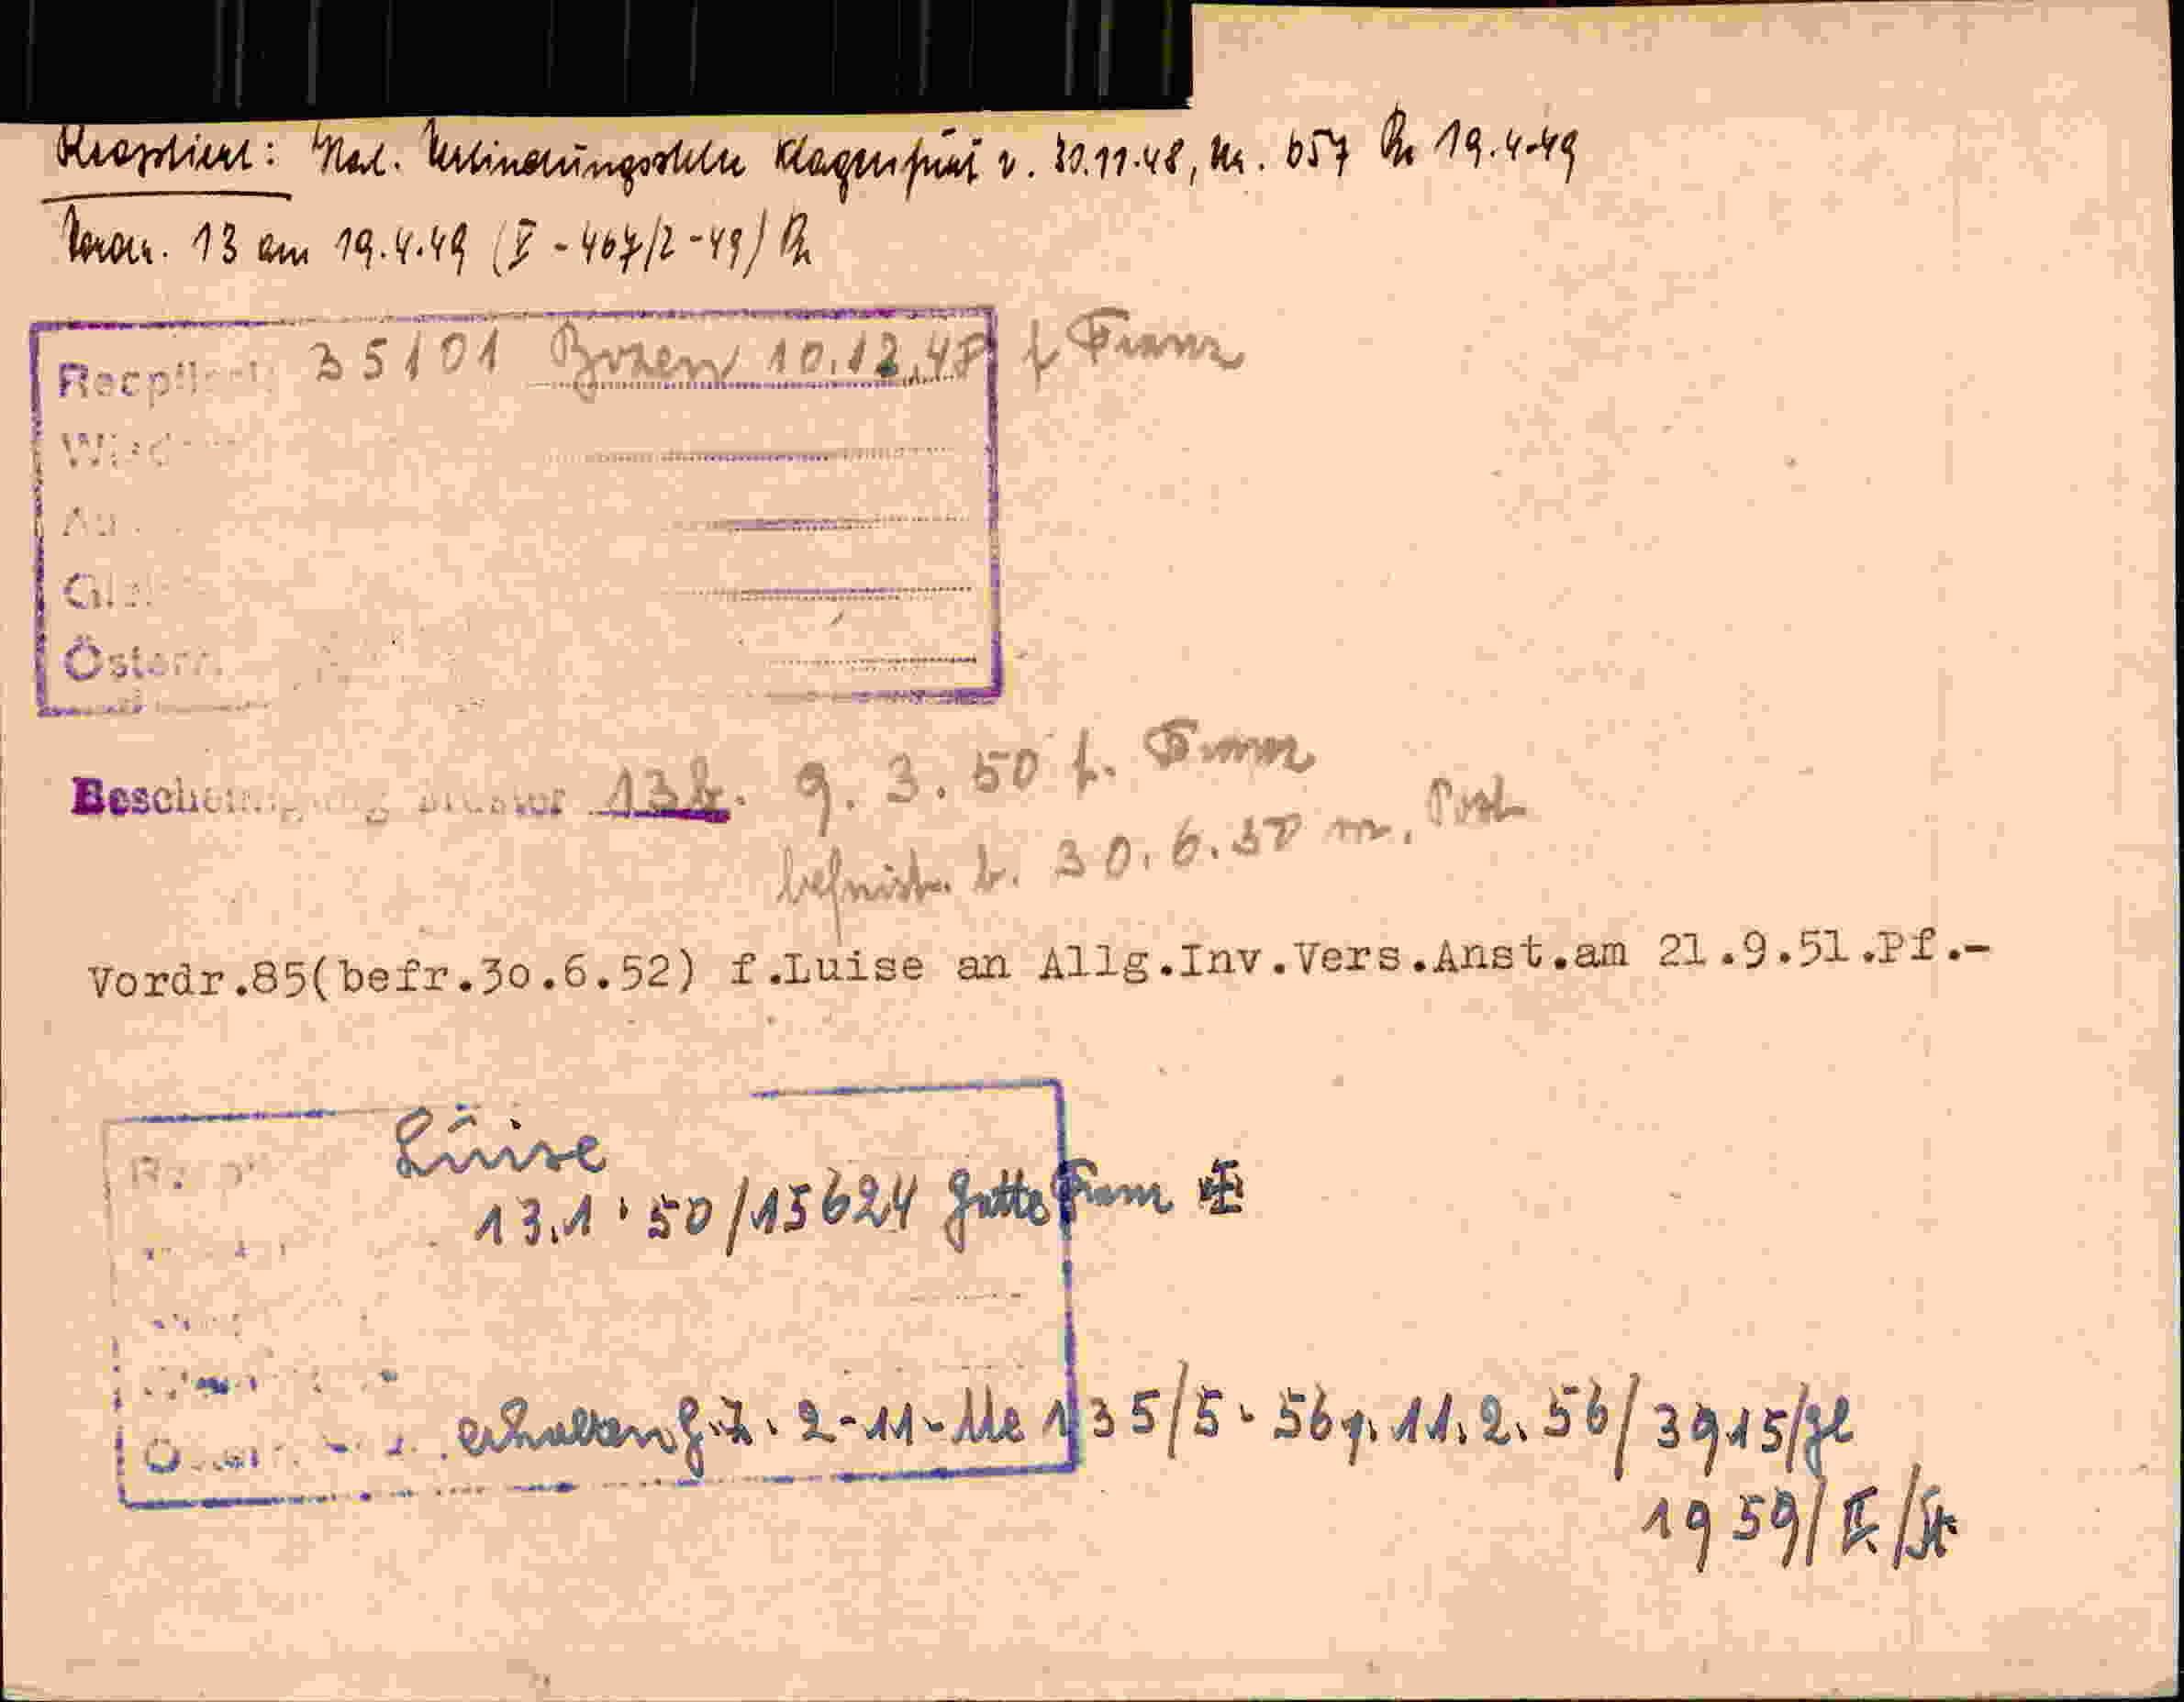 Reoptiert: Ital. Verbindungsstelle Klagenfurt v. 30.11.48, Nr. 657 19.4.49
Vordr. 13 am 19.4.49 (V - 467/2 - 49)
35101 Bozen 10.12.48 f Franz
Österr.
Bescheinigung Muster 13b. 9. 3. 50 f. Franz
befrist. b. 30. 6. 50 m. Post
Vordr.85(befr.30.6.52) f.Luise an Allg.Inv.Vers.Anst.am 21.9.51.Pf.-
Luise
13.1.50/15624 Gatte Franz
erhalten 2-11-Me 135/5-56 11.2.56/3915/
1959/II/St